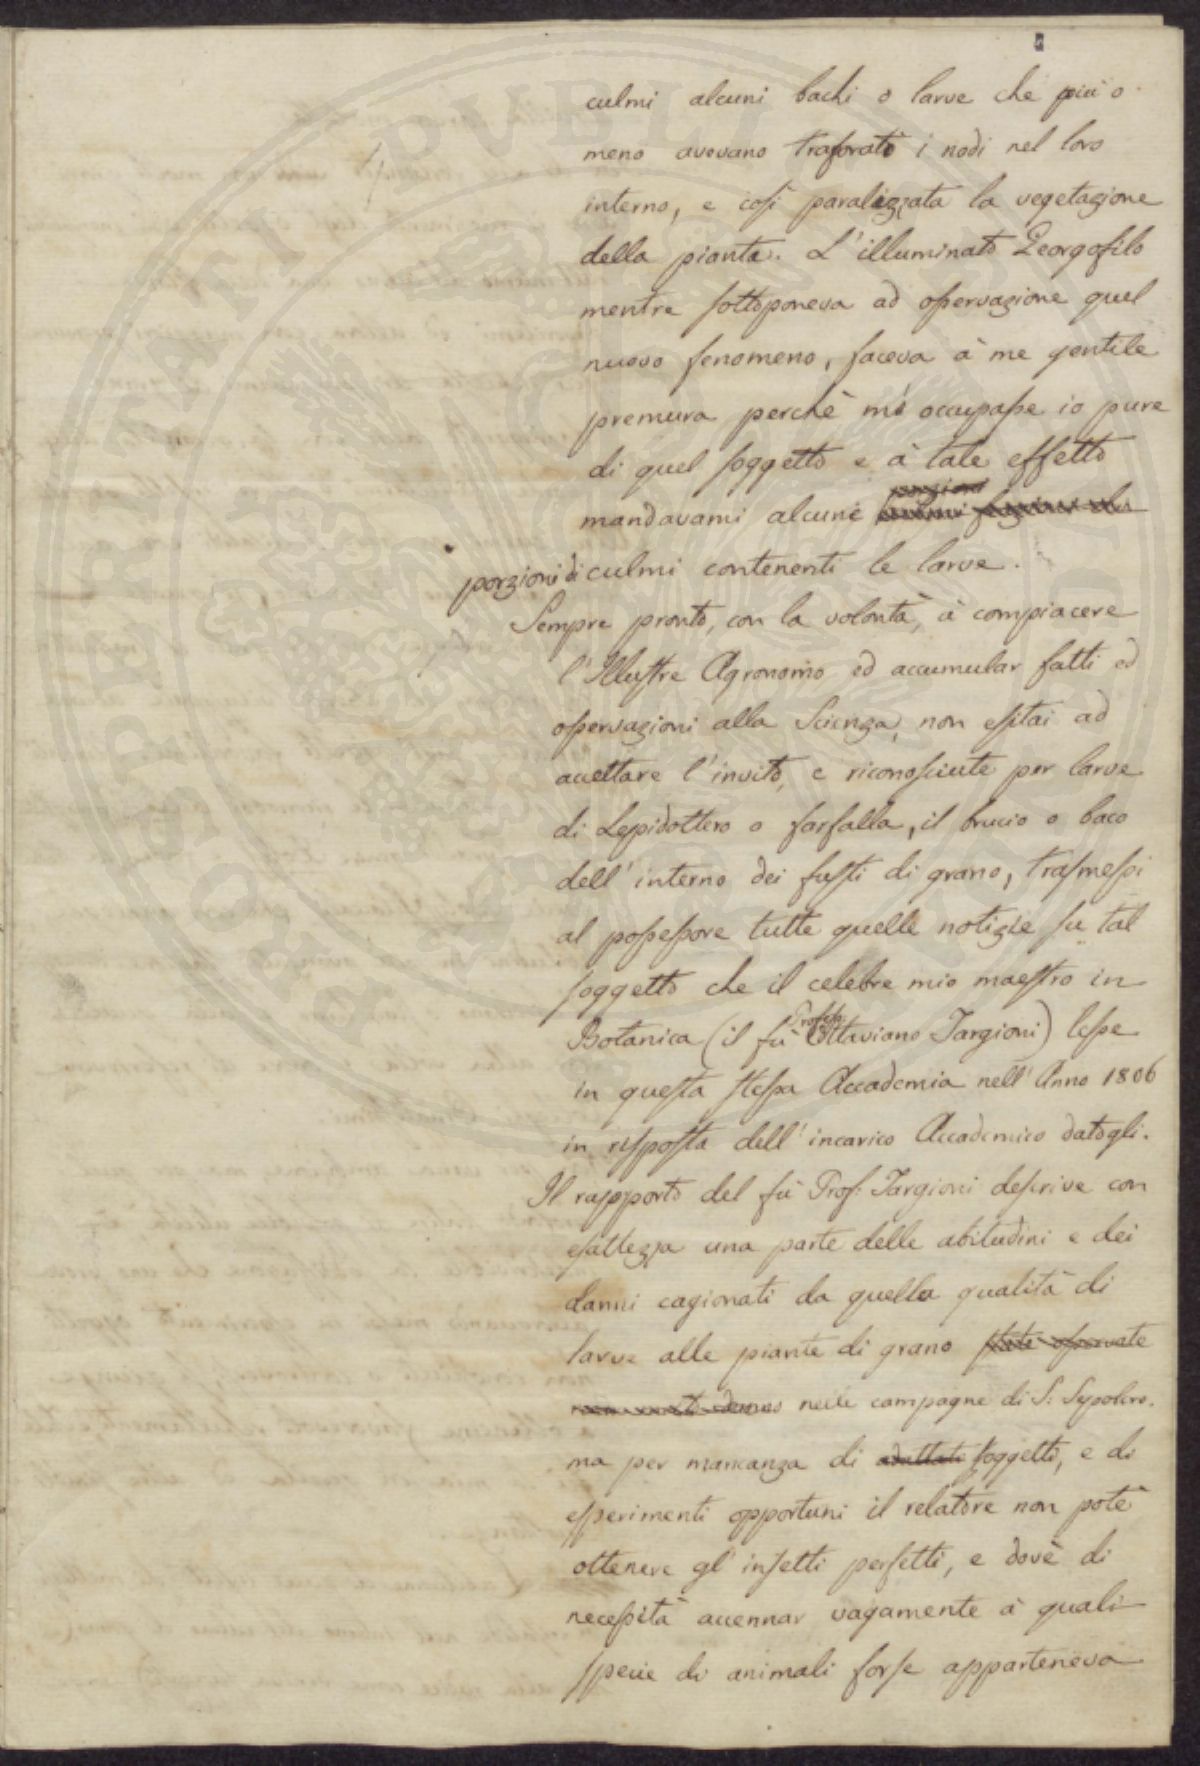 culmi alcuni bachi o larve che più o
meno avevano traforato i nodi nel loro
interno, e così paralizzata la vegetazione
della pianta. L'illuminato Georgofilo
mentre sottoponeva ad osservazione quel
nuovo fenomeno, faceva à me gentile
premura perchè m'occupasse io pure
di quel soggetto e à tale effetto
mandavami alcune
porzioni di culmi contenenti le larve.
Sempre pronto, con la volontà, à compiacere
l'Illustre Agronomo ed accumular fatti ed
osservazioni alla Scienza, non esitai ad
accettare l'invito, e riconosciute per larve
di Lepidottero o farfalla, il brucio o baco
dell'interno dei fusti di grano, trasmessi
al possessore tutte quelle notizie su tal
soggetto che il celebre mio maestro in
Botanica (il fù Profes: Ottaviano Targioni) lesse
in questa stessa Accademia nell'Anno 1806
in risposta dell'incarico Accademico datogli.
Il rapporto del fù Prof: Targioni descrive con
esattezza una parte delle abitudini e dei
danni cagionati da quella qualità di
larve alle piante di grano state osservate
nelle campagne di S: Sepolcro.
ma per mancanza di adattati soggetti, e di
esperimenti opportuni il relatore non potè
ottenere gl'insetti perfetti, e dovè di
necessità accennar vagamente à quali
specie di animali forse apparteneva
PVBLI